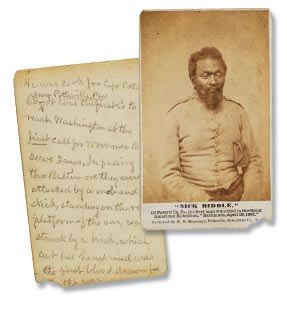 He was cook for Capt
from Pottsville, Pa.
Co. just was the first Co to
reach Washington at the
first call for 75000 men to
serve 3 mos. In passing
thro Baltimore they were
attacked by a mob and
Nick, standing on the
platform of the car, was
struck by a brick, which
cut his head and was
the first blood drawn for
the war.
"NICK BIDDLE,"
Of Pottsville, Pa. the first man wounded in the Great
American Rebellion, "Baltimore, April 18, 1861."
Published by W. R. Mortimer, Pottsville, Schuylkill Co.